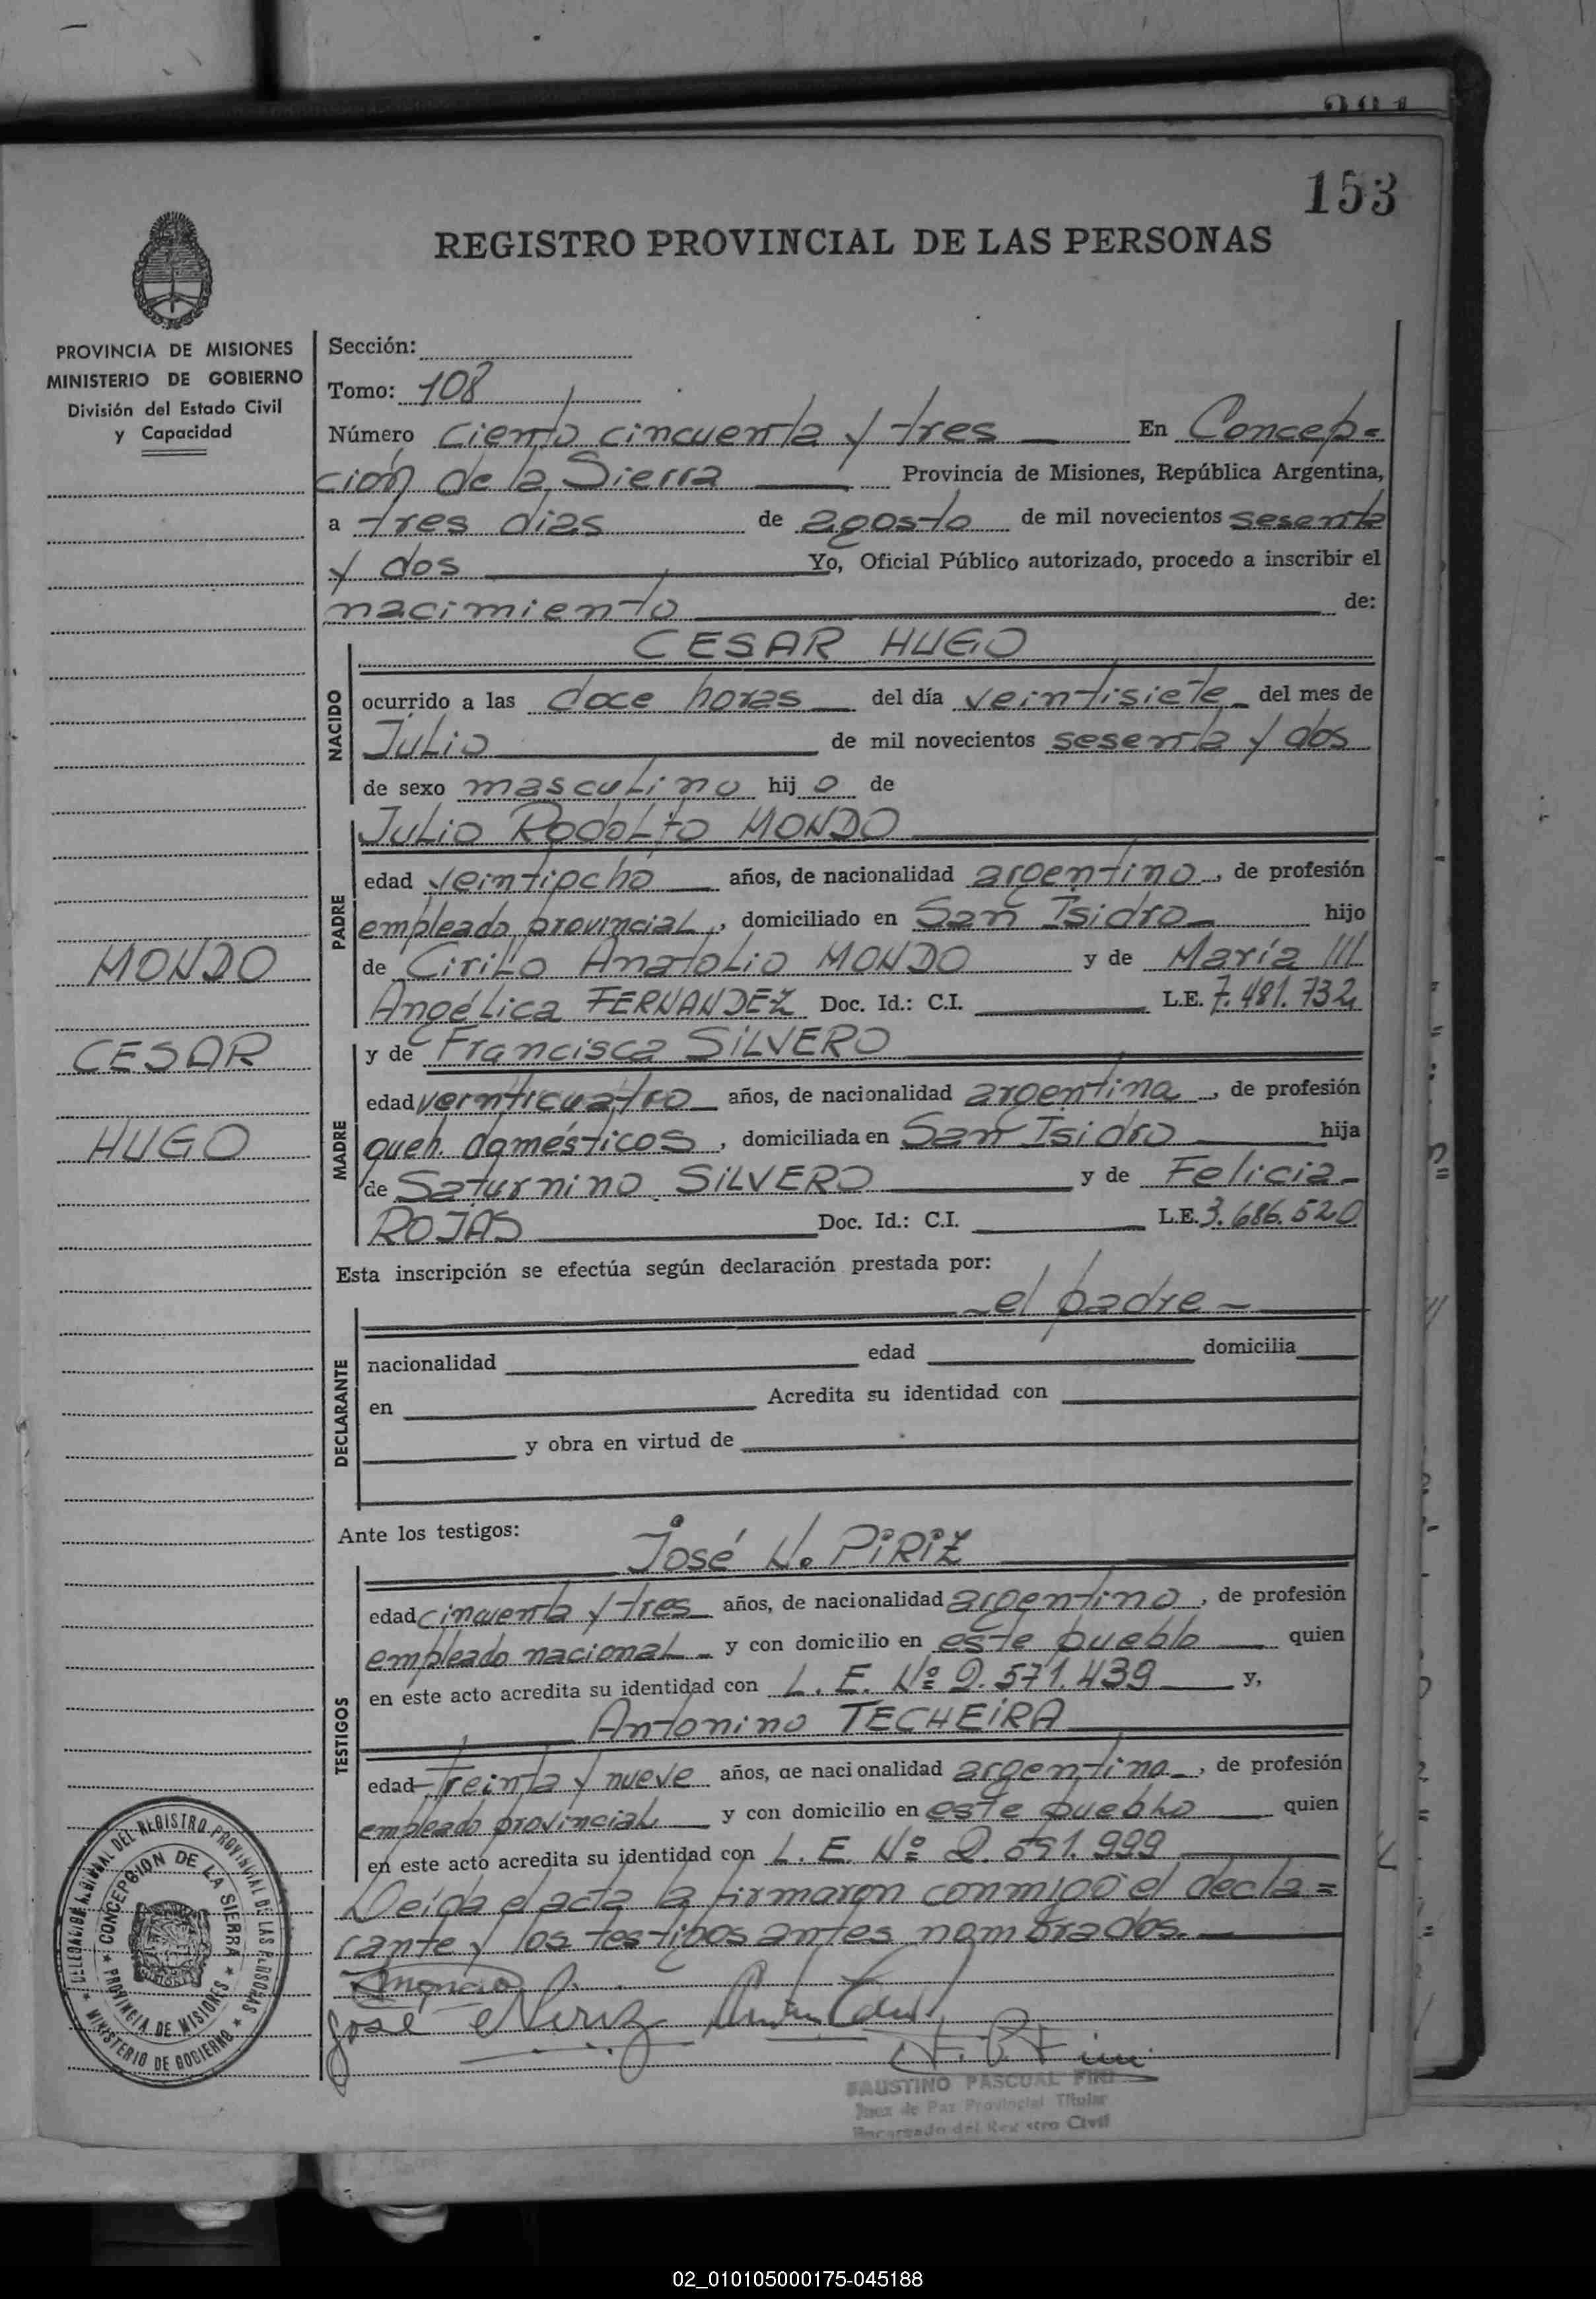 153
REGISTRO PROVINCIAL DE LAS PERSONAS
PROVINCIA DE MISIONES
MINISTERIO DE GOBIERNO
División del Estado Civil
y Capacidad
MONDO
CESAR
HUGO
Sección:
Tomo: 108
Número ciento cincuenta y tres En Concep=
ción de la Sierra Provincia de Misiones, República Argentina,
a tres dias de agosto de mil novecientos sesenta
y dos Yo, Oficial Público autorizado, procedo a inscribir el
nacimiento de:
CESAR HUGO
NACIDO
ocurrido a las doce horas del día veintisiete del mes de
Julio de mil novecientos sesenta y dos
de sexo masculino hij o de
Julio Rodolfo MONDO
PADRE
edad veintiocho años, de nacionalidad argentino, de profesión
empleado provincial, domiciliado en San Isidro hijo
de Cirilo Anatolio MONDO y de María ///
Angélica FERNANDEZ Doc. Id.: C.I. L.E. 7.481.732
y de Francisca SILVERO
MADRE
edad veinticuatro años, de nacionalidad argentina, de profesión
queh. domésticos, domiciliada en San Isidro hija
de Saturnino SILVERO y de Felicia
ROJAS Doc. Id.: C.I. L.E. 3.686.520
Esta inscripción se efectúa según declaración prestada por:
el padre
DECLARANTE
nacionalidad edad domicilia
en Acredita su identidad con
y obra en virtud de
Ante los testigos:
José N. PIRIZ
TESTIGOS
edad cincuenta y tres años, de nacionalidad argentino, de profesión
empleado nacional y con domicilio en este pueblo quien
en este acto acredita su identidad con L. E. Nº 2.571.439 y,
Antonino TECHEIRA
edad treinta y nueve años, de nacionalidad argentina, de profesión
empleado provincial y con domicilio en este pueblo quien
en este acto acredita su identidad con L. E. Nº 2.591.999
Leída el acta la firmaron conmigo el decla=
rante y los testigos antes nombrados.
José
FAUSTINO PASCUAL FINI
Juez de Paz Provincial Titular
Encargado del Registro Civil
DELEGACION REGIONAL DEL REGISTRO PROVINCIAL DE LAS PERSONAS
MINISTERIO DE GOBIERNO
CONCEPCION DE LA SIERRA
PROVINCIA DE MISIONES
02_010105000175-045188